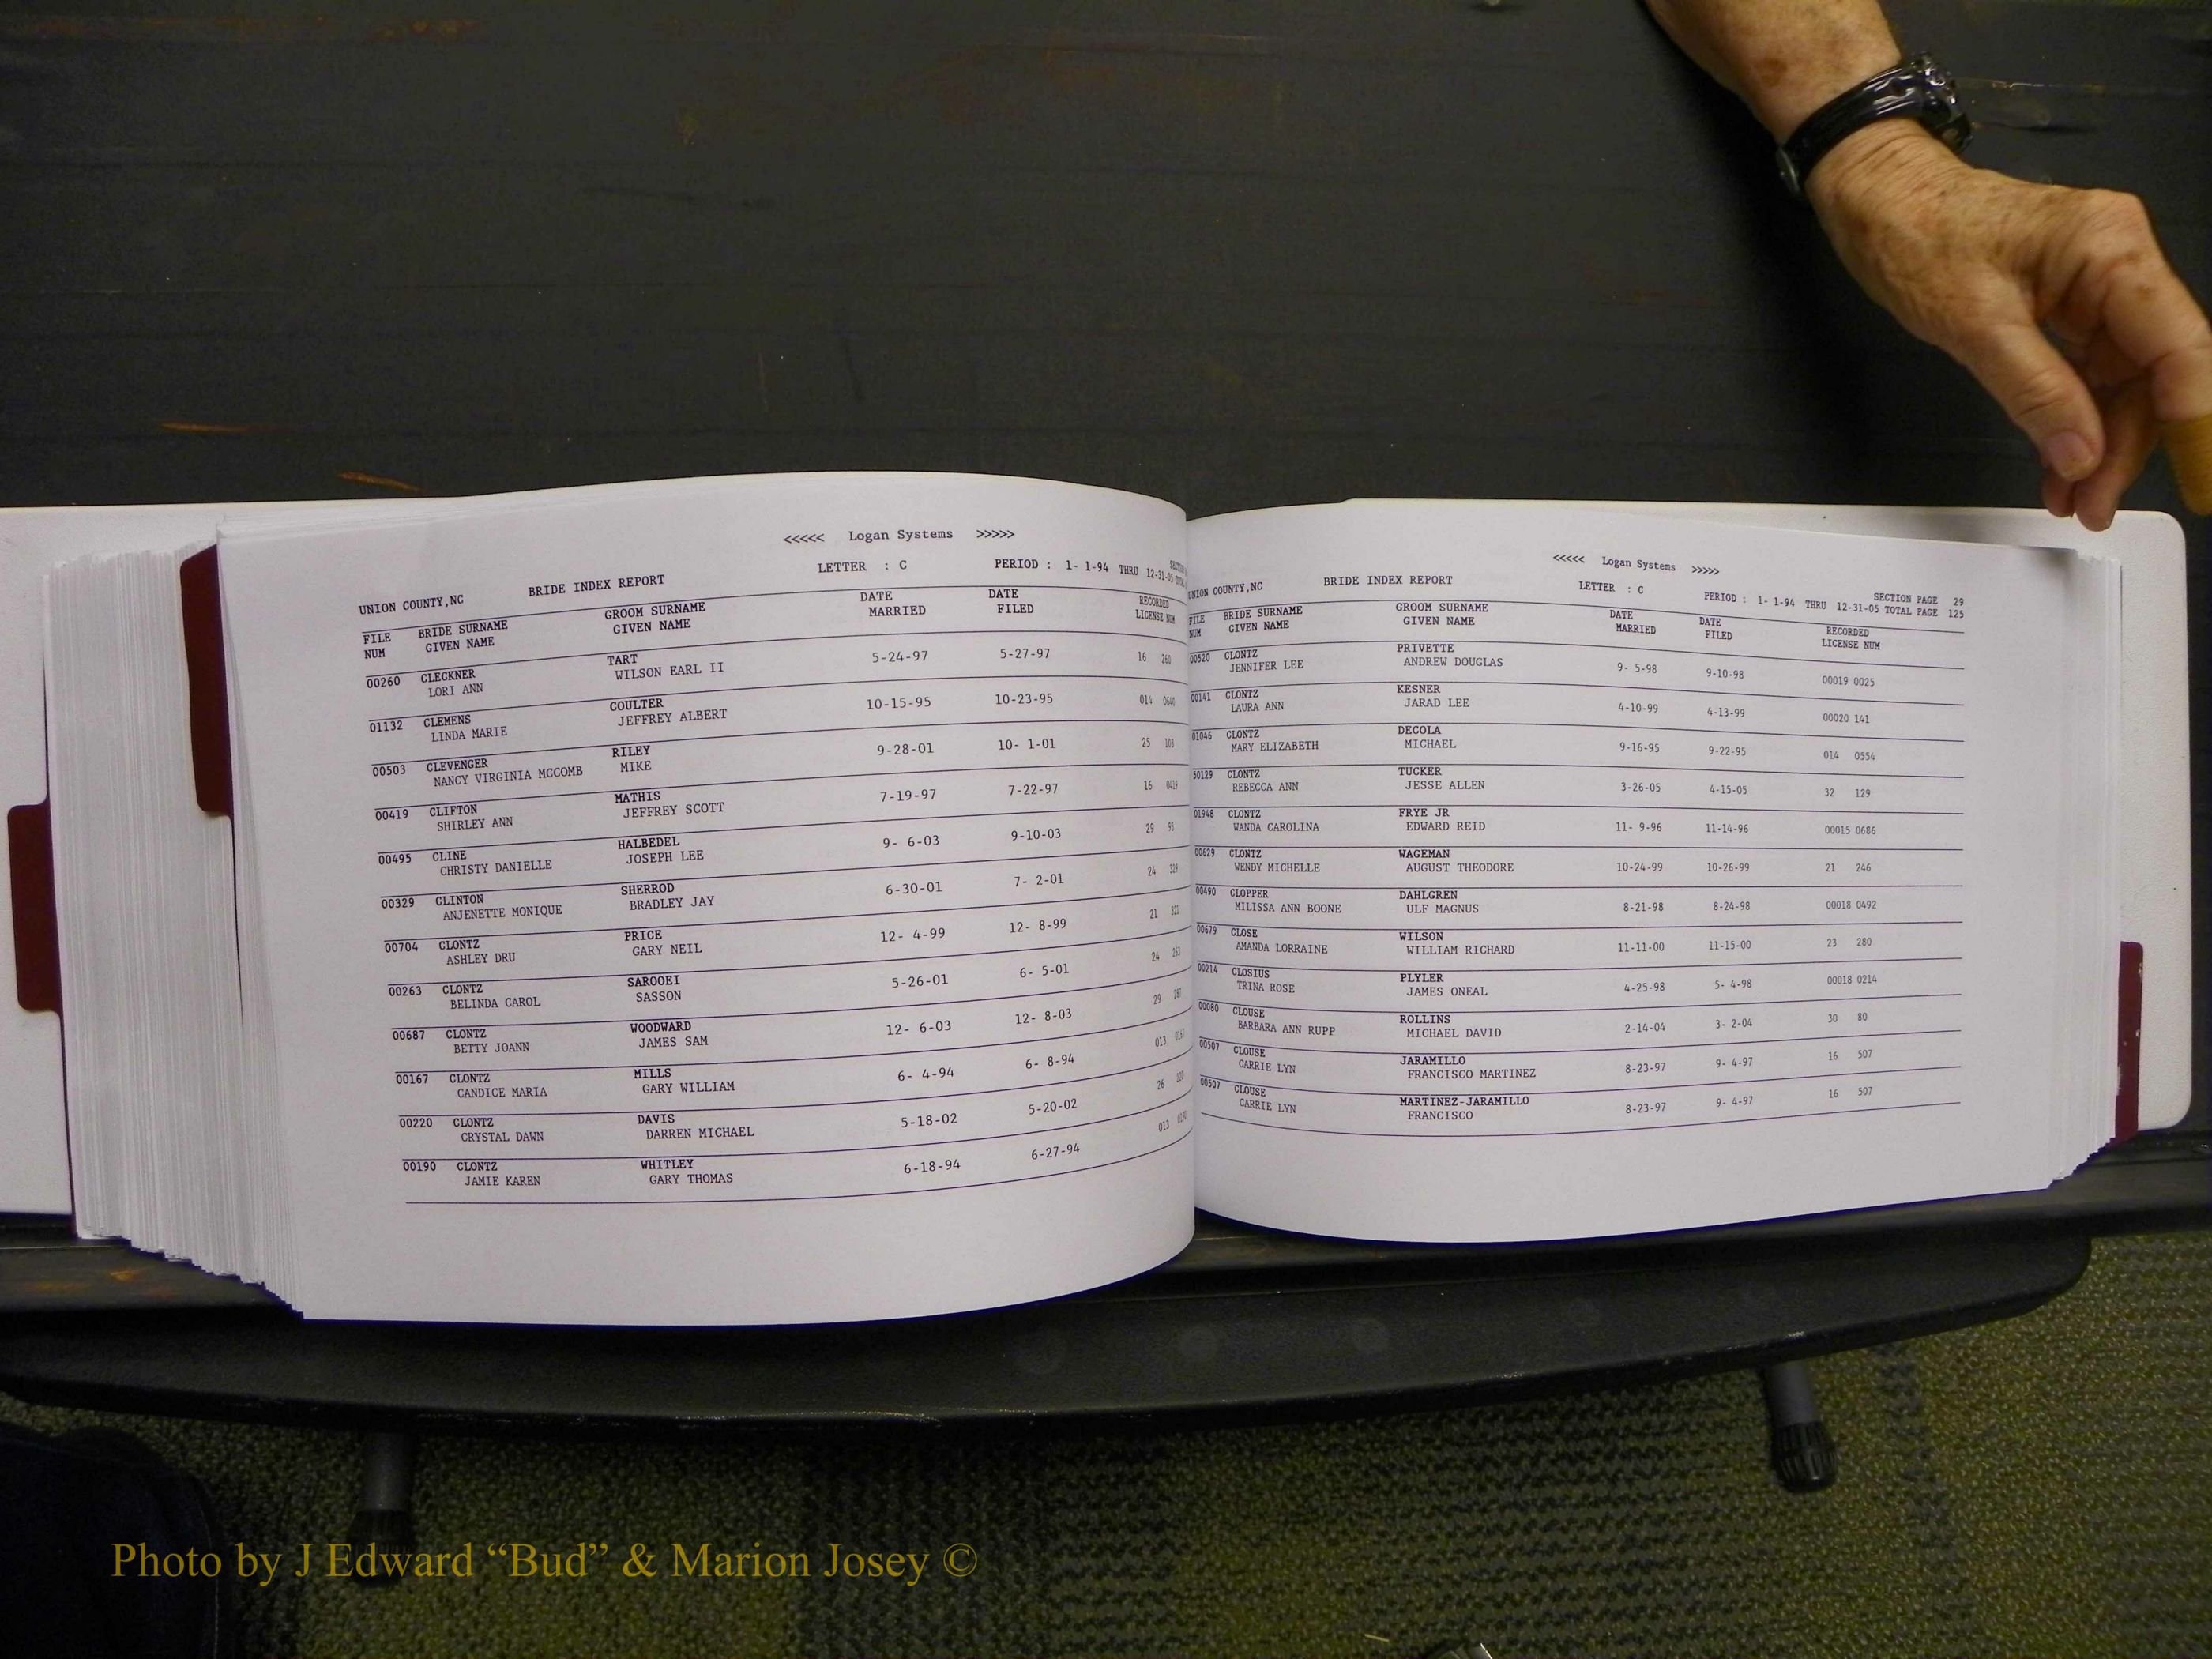 <<<<< Logan Systems >>>>>
LETTER : C PERIOD : 1- 1-94 THRU 12-31-05
UNION COUNTY,NC BRIDE INDEX REPORT
FILE BRIDE SURNAME GROOM SURNAME DATE DATE RECORDED
NUM GIVEN NAME GIVEN NAME MARRIED FILED LICENSE NUM
00260 CLECKNER TART 5-24-97 5-27-97 16 260
LORI ANN WILSON EARL II
01132 CLEMENS COULTER 10-15-95 10-23-95 014 0640
LINDA MARIE JEFFREY ALBERT
00503 CLEVENGER RILEY 9-28-01 10- 1-01 25 103
NANCY VIRGINIA MCCOMB MIKE
00419 CLIFTON MATHIS 7-19-97 7-22-97 16 0419
SHIRLEY ANN JEFFREY SCOTT
00495 CLINE HALBEDEL 9- 6-03 9-10-03 29 95
CHRISTY DANIELLE JOSEPH LEE
00329 CLINTON SHERROD 6-30-01 7- 2-01 24
ANJENETTE MONIQUE BRADLEY JAY
00704 CLONTZ PRICE 12- 4-99 12- 8-99 21
ASHLEY DRU GARY NEIL
00263 CLONTZ SAROOEI 5-26-01 6- 5-01 24 263
BELINDA CAROL SASSON
00687 CLONTZ WOODWARD 12- 6-03 12- 8-03 29
BETTY JOANN JAMES SAM
00167 CLONTZ MILLS 6- 4-94 6- 8-94 013
CANDICE MARIA GARY WILLIAM
00220 CLONTZ DAVIS 5-18-02 5-20-02 26
CRYSTAL DAWN DARREN MICHAEL
00190 CLONTZ WHITLEY 6-18-94 6-27-94 013
JAMIE KAREN GARY THOMAS
<<<<< Logan Systems >>>>>
UNION COUNTY,NC BRIDE INDEX REPORT LETTER : C SECTION PAGE 29
PERIOD : 1- 1-94 THRU 12-31-05 TOTAL PAGE 125
FILE BRIDE SURNAME GROOM SURNAME DATE DATE RECORDED
NUM GIVEN NAME GIVEN NAME MARRIED FILED LICENSE NUM
00520 CLONTZ PRIVETTE 9- 5-98 9-10-98 00019 0025
JENNIFER LEE ANDREW DOUGLAS
00141 CLONTZ KESNER 4-10-99 4-13-99 00020 141
LAURA ANN JARAD LEE
01046 CLONTZ DECOLA 9-16-95 9-22-95 014 0554
MARY ELIZABETH MICHAEL
50129 CLONTZ TUCKER 3-26-05 4-15-05 32 129
REBECCA ANN JESSE ALLEN
01948 CLONTZ FRYE JR 11- 9-96 11-14-96 00015 0686
WANDA CAROLINA EDWARD REID
00629 CLONTZ WAGEMAN 10-24-99 10-26-99 21 246
WENDY MICHELLE AUGUST THEODORE
00490 CLOPPER DAHLGREN 8-21-98 8-24-98 00018 0492
MILISSA ANN BOONE ULF MAGNUS
00679 CLOSE WILSON 11-11-00 11-15-00 23 280
AMANDA LORRAINE WILLIAM RICHARD
00214 CLOSIUS PLYLER 4-25-98 5- 4-98 00018 0214
TRINA ROSE JAMES ONEAL
00080 CLOUSE ROLLINS 2-14-04 3- 2-04 30 80
BARBARA ANN RUPP MICHAEL DAVID
00507 CLOUSE JARAMILLO 8-23-97 9- 4-97 16 507
CARRIE LYN FRANCISCO MARTINEZ
00507 CLOUSE MARTINEZ-JARAMILLO 8-23-97 9- 4-97 16 507
CARRIE LYN FRANCISCO
Photo by J Edward “Bud” & Marion Josey ©